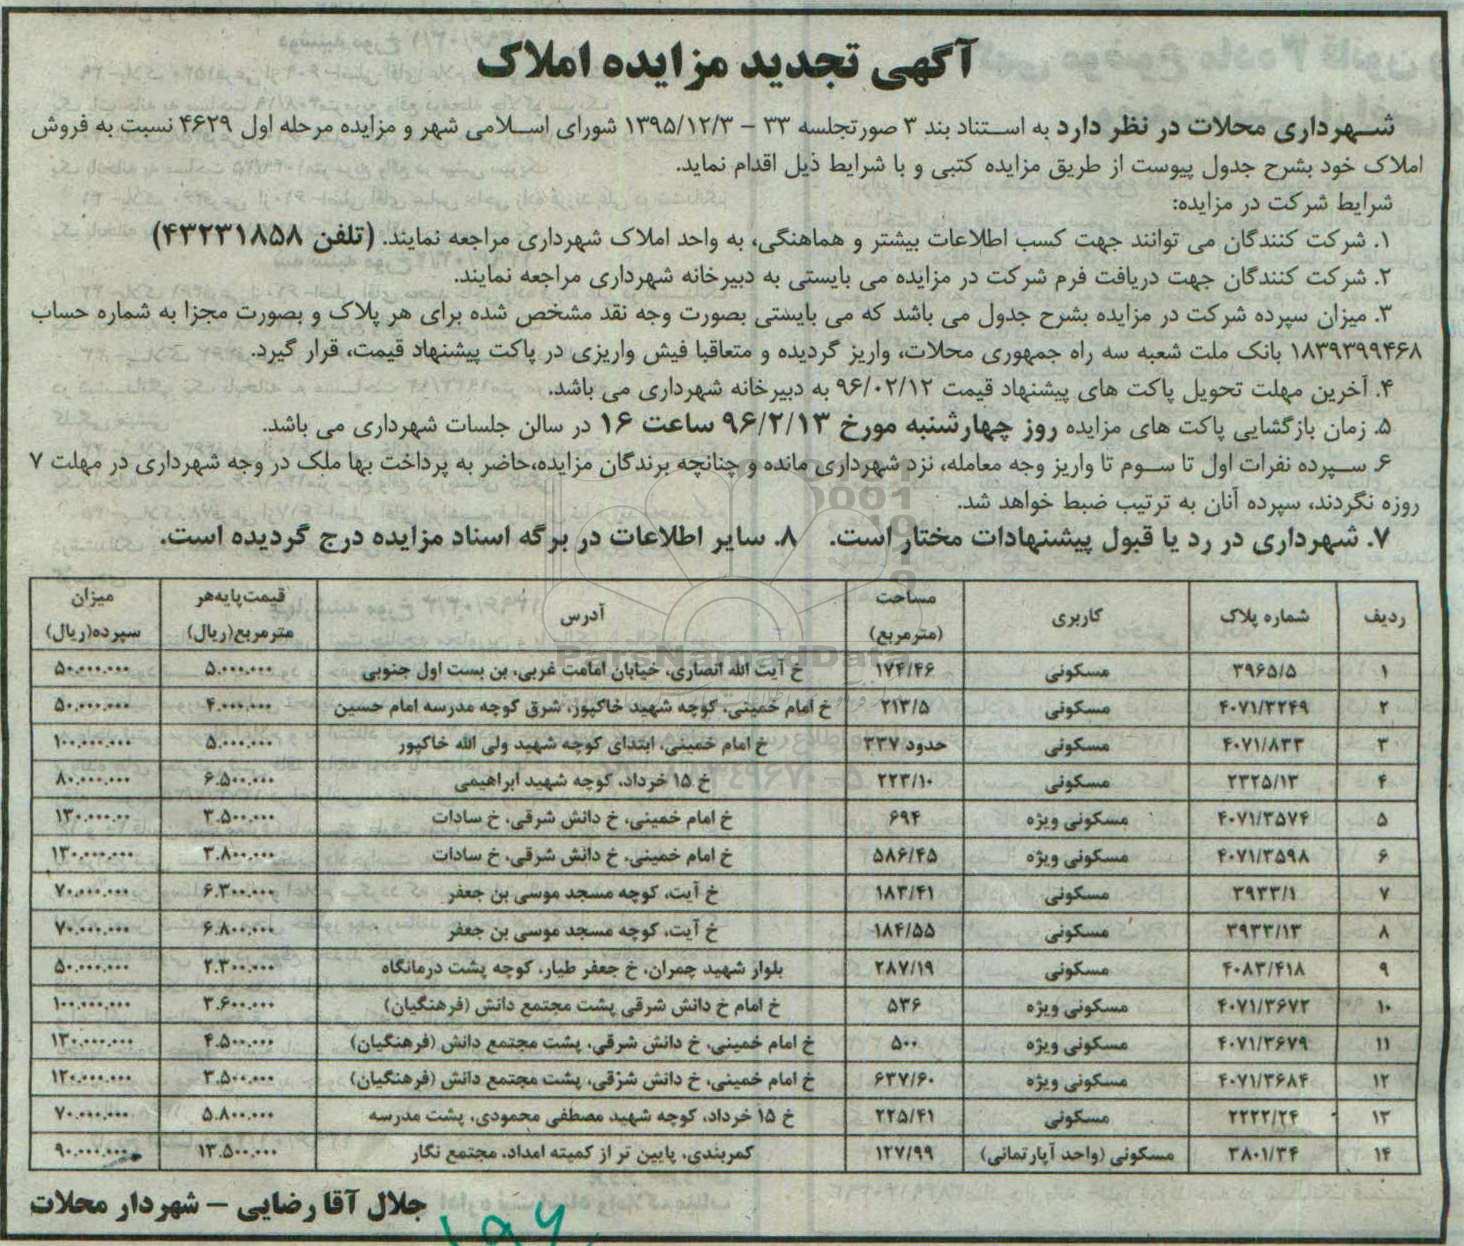 آگهی تجدید مزایده املاک
شهرداری محلات در نظر دارد به استناد بند ۳ صورتجلسه ۳۳ - ۱۳۹۵/۱۲/۳ شورای اسلامی شهر و مزایده مرحله اول ۴۶۲۹ نسبت به فروش
املاک خود بشرح جدول پیوست از طریق مزایده کتبی و با شرایط ذیل اقدام نماید.
شرایط شرکت در مزایده:
۱. شرکت کنندگان می توانند جهت کسب اطلاعات بیشتر و هماهنگی، به واحد املاک شهرداری مراجعه نمایند. (تلفن ۴۳۲۳۱۸۵۸)
۲. شرکت کنندگان جهت دریافت فرم شرکت در مزایده می بایستی به دبیرخانه شهرداری مراجعه نمایند.
۳. میزان سپرده شرکت در مزایده بشرح جدول می باشد که می بایستی بصورت وجه نقد مشخص شده برای هر پلاک و بصورت مجزا به شماره حساب
۱۸۳۹۳۹۹۴۶۸ بانک ملت شعبه سه راه جمهوری محلات، واریز گردیده و متعاقبا فیش واریزی در پاکت پیشنهاد قیمت، قرار گیرد.
۴. آخرین مهلت تحویل پاکت های پیشنهاد قیمت ۹۶/۰۲/۱۲ به دبیرخانه شهرداری می باشد.
۵. زمان بازگشایی پاکت های مزایده روز چهارشنبه مورخ ۹۶/۲/۱۳ ساعت ۱۶ در سالن جلسات شهرداری می باشد.
۶. سپرده نفرات اول تا سوم تا واریز وجه معامله، نزد شهرداری مانده و چنانچه برندگان مزایده،حاضر به پرداخت بها ملک در وجه شهرداری در مهلت ۷
روزه نگردند، سپرده آنان به ترتیب ضبط خواهد شد.
۷. شهرداری در رد یا قبول پیشنهادات مختار است. ۸. سایر اطلاعات در برگه اسناد مزایده درج گردیده است.
ردیف شماره پلاک کاربری مساحت (مترمربع) آدرس قیمت‌پایه‌هر مترمربع(ریال) میزان سپرده(ریال)
۱ ۳۹۶۵/۵ مسکونی ۱۷۴/۴۶ خ آیت الله انصاری، خیابان امامت غربی، بن بست اول جنوبی ۵.۰۰۰.۰۰۰ ۵۰.۰۰۰.۰۰۰
۲ ۴۰۷۱/۳۲۴۹ مسکونی ۲۱۳/۵ خ امام خمینی، کوچه شهید خاکپور، شرق کوچه مدرسه امام حسین ۴.۰۰۰.۰۰۰ ۵۰.۰۰۰.۰۰۰
۳ ۴۰۷۱/۸۳۳ مسکونی حدود ۳۳۷ خ امام خمینی، ابتدای کوچه شهید ولی الله خاکپور ۵.۰۰۰.۰۰۰ ۱۰۰.۰۰۰.۰۰۰
۴ ۲۳۲۵/۱۳ مسکونی ۲۲۳/۱۰ خ ۱۵ خرداد، کوچه شهید ابراهیمی ۶.۵۰۰.۰۰۰ ۸۰.۰۰۰.۰۰۰
۵ ۴۰۷۱/۳۵۷۴ مسکونی ویژه ۶۹۴ خ امام خمینی، خ دانش شرقی، خ سادات ۳.۵۰۰.۰۰۰ ۱۳۰.۰۰۰.۰۰
۶ ۴۰۷۱/۳۵۹۸ مسکونی ویژه ۵۸۶/۴۵ خ امام خمینی، خ دانش شرقی، خ سادات ۳.۸۰۰.۰۰۰ ۱۳۰.۰۰۰.۰۰۰
۷ ۳۹۳۳/۱ مسکونی ۱۸۳/۴۱ خ آیت، کوچه مسجد موسی بن جعفر ۶.۳۰۰.۰۰۰ ۷۰.۰۰۰.۰۰۰
۸ ۳۹۳۳/۱۳ مسکونی ۱۸۴/۵۵ خ آیت، کوچه مسجد موسی بن جعفر ۶.۸۰۰.۰۰۰ ۷۰.۰۰۰.۰۰۰
۹ ۴۰۸۳/۴۱۸ مسکونی ۲۸۷/۱۹ بلوار شهید چمران، خ جعفر طیار، کوچه پشت درمانگاه ۲.۳۰۰.۰۰۰ ۵۰.۰۰۰.۰۰۰
۱۰ ۴۰۷۱/۳۶۷۲ مسکونی ویژه ۵۳۶ خ امام خ دانش شرقی پشت مجتمع دانش (فرهنگیان) ۳.۶۰۰.۰۰۰ ۱۰۰.۰۰۰.۰۰۰
۱۱ ۴۰۷۱/۳۶۷۹ مسکونی ویژه ۵۰۰ خ امام خمینی، خ دانش شرقی، پشت مجتمع دانش (فرهنگیان) ۴.۵۰۰.۰۰۰ ۱۳۰.۰۰۰.۰۰۰
۱۲ ۴۰۷۱/۳۶۸۴ مسکونی ویژه ۶۳۷/۶۰ خ امام خمینی، خ دانش شرقی، پشت مجتمع دانش (فرهنگیان) ۳.۵۰۰.۰۰۰ ۱۲۰.۰۰۰.۰۰۰
۱۳ ۲۲۲۲/۲۴ مسکونی ۲۲۵/۴۱ خ ۱۵ خرداد، کوچه شهید مصطفی محمودی، پشت مدرسه ۵.۸۰۰.۰۰۰ ۷۰.۰۰۰.۰۰۰
۱۴ ۳۸۰۱/۳۴ مسکونی (واحد آپارتمانی) ۱۲۷/۹۹ کمربندی، پایین تر از کمیته امداد، مجتمع نگار ۱۳.۵۰۰.۰۰۰ ۹۰.۰۰۰.۰۰۰
جلال آقا رضایی - شهردار محلات
ParsNamadData